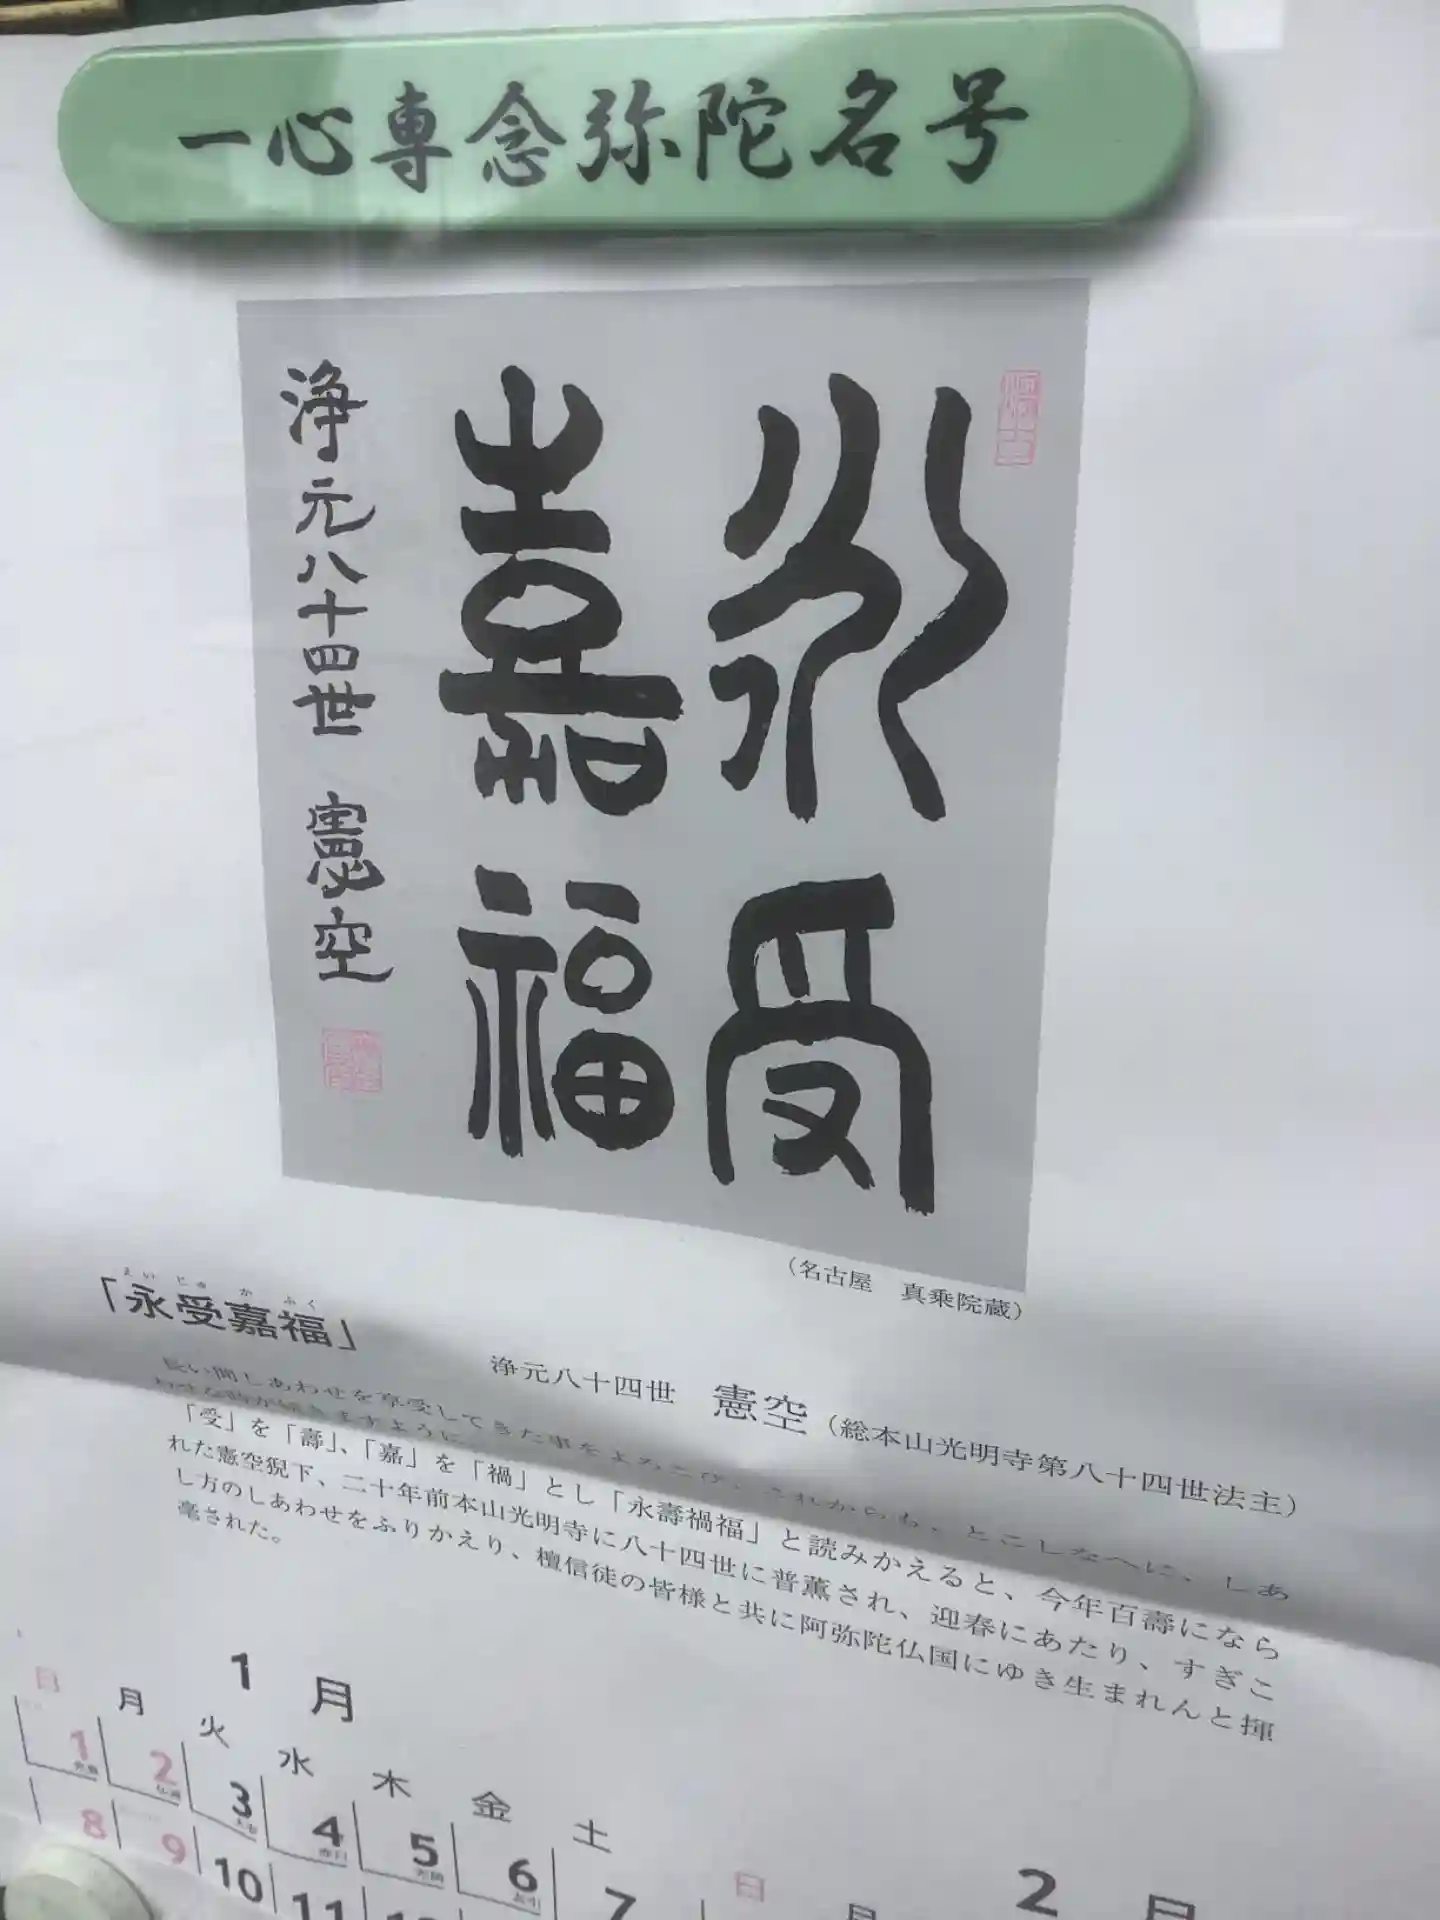 一心専念弥陀名号
永受
嘉福
浄元八十四世 憲空
(名古屋 真乗院蔵)
えいじゅかふく
「永受嘉福」
浄元八十四世 憲空(総本山光明寺第八十四世法主)
長い間しあわせを享受してきた事をよろこび、これからも、とこしなへに、しあ
わせな時が続きますように
「受」を「壽」、「嘉」を「禍」とし「永壽禍福」と読みかえると、今年百壽になら
れた憲空猊下、二十年前本山光明寺に八十四世に普薫され、迎春にあたり、すぎこ
し方のしあわせをふりかえり、檀信徒の皆様と共に阿弥陀仏国にゆき生まれんと揮
毫された。
1月
日 月 火 水 木 金 土
1 2 3 4 5 6 7
8 9 10 11
2月
日 月